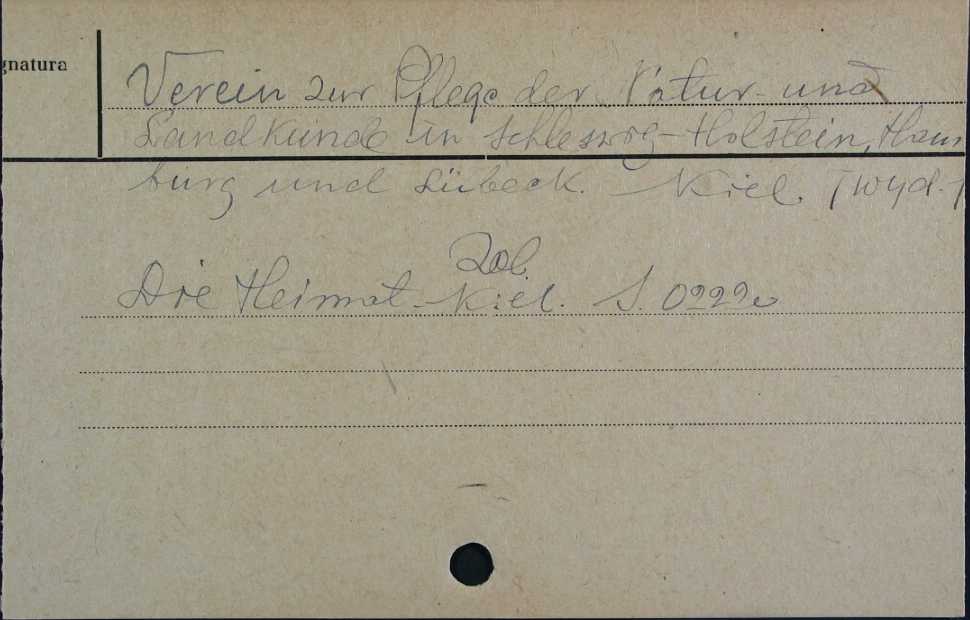 gnatura
Verein zur Pflege der Natur- und
Landkunde in Schleswig-Holstein, Ham
burg und Lübeck. Kiel. [wyd.]
Zob.
Die Heimat. Kiel. S.